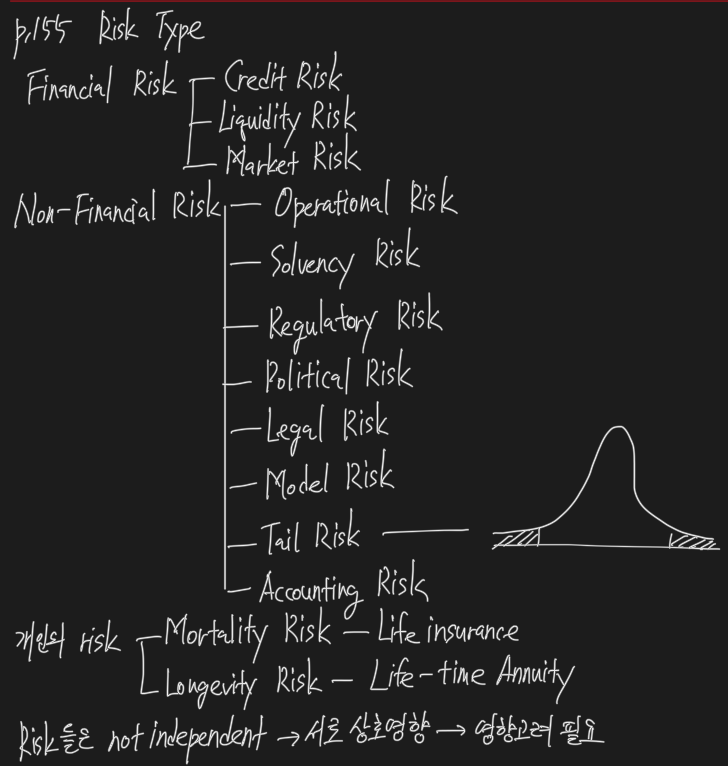 p.155 Risk Type
Financial Risk
Credit Risk
Liquidity Risk
Market Risk
Non-Financial Risk
Operational Risk
Solvency Risk
Regulatory Risk
Political Risk
Legal Risk
Model Risk
Tail Risk
Accounting Risk
개인의 risk
Mortality Risk — Life insurance
Longevity Risk — Life-time Annuity
Risk들은 not independent → 서로 상호영향 → 영향고려 필요